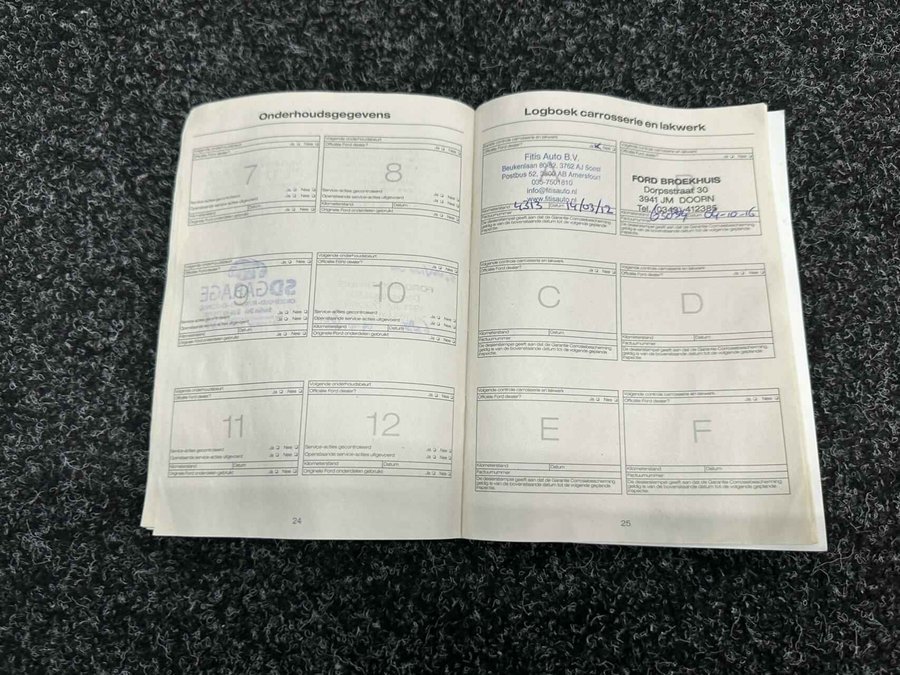 Onderhoudsgegevens
7
Ja Nee
Ja Nee
Ja Nee
Volgende onderhoudsbeurt
Officiële Ford dealer?
Ja Nee
8
Service-acties gecontroleerd
Ja Nee
Openstaande service-acties uitgevoerd
Ja Nee
Kilometerstand Datum
Originele Ford onderdelen gebruikt
Ja Nee
9
SDGARAGE
Datum
Originele Ford onderdelen gebruikt
Ja Nee
Volgende onderhoudsbeurt
Officiële Ford dealer?
Ja Nee
10
Service-acties gecontroleerd
Ja Nee
Openstaande service-acties uitgevoerd
Ja Nee
Kilometerstand Datum
Originele Ford onderdelen gebruikt
Ja Nee
Volgende onderhoudsbeurt
Officiële Ford dealer?
Ja Nee
11
Service-acties gecontroleerd
Ja Nee
Openstaande service-acties uitgevoerd
Ja Nee
Kilometerstand Datum
Originele Ford onderdelen gebruikt
Ja Nee
Volgende onderhoudsbeurt
Officiële Ford dealer?
Ja Nee
12
Service-acties gecontroleerd
Ja Nee
Openstaande service-acties uitgevoerd
Ja Nee
Kilometerstand Datum
Originele Ford onderdelen gebruikt
Ja Nee
24
Logboek carrosserie en lakwerk
Volgende controle carrosserie en lakwerk
Officiële Ford dealer?
Ja Nee
Fitis Auto B.V.
Beukenlaan 80/82, 3762 AJ Soest
Postbus 52, 3800 AB Amersfoort
035-7501810
info@fitisauto.nl
www.fitisauto.nl
4313 Datum 14/03/12
Factuurnummer
De dealerstempel geeft aan dat de Garantie Corrosiebescherming
geldig is van de bovenstaande datum tot de volgende geplande
inspectie.
Volgende controle carrosserie en lakwerk
Officiële Ford dealer?
Ja Nee
FORD BROEKHUIS
Dorpsstraat 30
3941 JM DOORN
Tel. (0343) 412385
04-10-16
De dealerstempel geeft aan dat de Garantie Corrosiebescherming
geldig is van de bovenstaande datum tot de volgende geplande
inspectie.
Volgende controle carrosserie en lakwerk
Officiële Ford dealer?
Ja Nee
C
Kilometerstand Datum
Factuurnummer
De dealerstempel geeft aan dat de Garantie Corrosiebescherming
geldig is van de bovenstaande datum tot de volgende geplande
inspectie.
Volgende controle carrosserie en lakwerk
Officiële Ford dealer?
Ja Nee
D
Kilometerstand Datum
Factuurnummer
De dealerstempel geeft aan dat de Garantie Corrosiebescherming
geldig is van de bovenstaande datum tot de volgende geplande
inspectie.
Volgende controle carrosserie en lakwerk
Officiële Ford dealer?
Ja Nee
E
Kilometerstand Datum
Factuurnummer
De dealerstempel geeft aan dat de Garantie Corrosiebescherming
geldig is van de bovenstaande datum tot de volgende geplande
inspectie.
Volgende controle carrosserie en lakwerk
Officiële Ford dealer?
Ja Nee
F
Kilometerstand Datum
Factuurnummer
De dealerstempel geeft aan dat de Garantie Corrosiebescherming
geldig is van de bovenstaande datum tot de volgende geplande
inspectie.
25